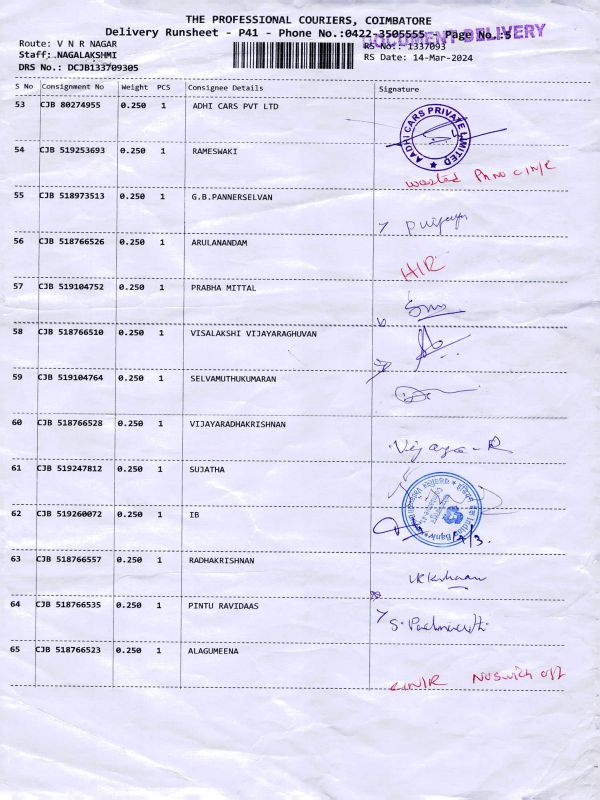 THE PROFESSIONAL COURIERS, COIMBATORE
Delivery Runsheet - P41 - Phone No.:0422-3505555 - Page No.:5
DOCUMENT DELIVERY
Route: V N R NAGAR
RS No.: 1337093
Staff: NAGALAKSHMI
RS Date: 14-Mar-2024
DRS No.: DCJB133709305
S No Consignment No Weight PCS Consignee Details Signature
53 CJB 80274955 0.250 1 ADHI CARS PVT LTD
AADHI CARS PRIVATE LIMITED
54 CJB 519253693 0.250 1 RAMESWAKI
55 CJB 518973513 0.250 1 G.B.PANNERSELVAN
56 CJB 518766526 0.250 1 ARULANANDAM
57 CJB 519104752 0.250 1 PRABHA MITTAL
58 CJB 518766510 0.250 1 VISALAKSHI VIJAYARAGHUVAN
59 CJB 519104764 0.250 1 SELVAMUTHUKUMARAN
60 CJB 518766528 0.250 1 VIJAYARADHAKRISHNAN
Vijaya-R
61 CJB 519247812 0.250 1 SUJATHA
62 CJB 519260072 0.250 1 IB
63 CJB 518766557 0.250 1 RADHAKRISHNAN
64 CJB 518766535 0.250 1 PINTU RAVIDAAS
65 CJB 518766523 0.250 1 ALAGUMEENA